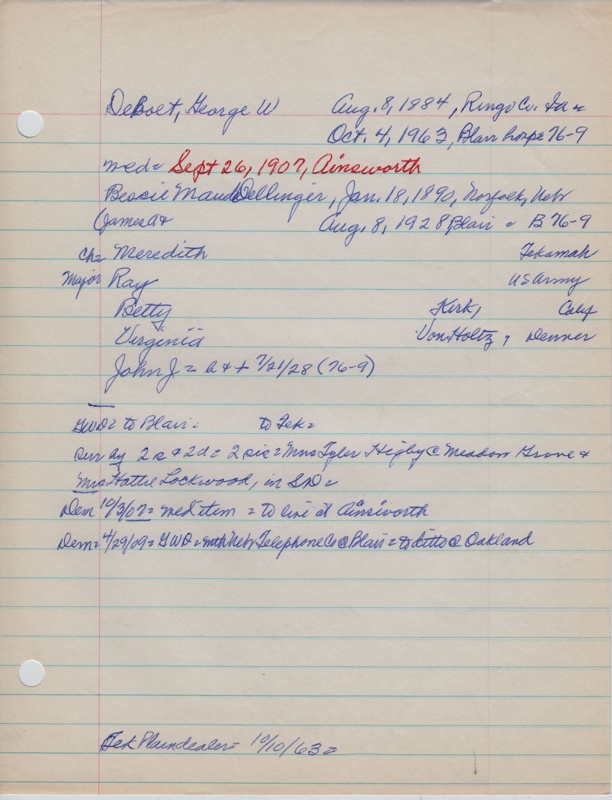 DeBoet, George W Aug. 8, 1884, Ringo Co. Ia =
Oct. 4, 1963, Blair hosp = 76-9
med = Sept 26, 1907, Ainsworth
Bessie Maud Dellinger, Jan. 18, 1890, Norfolk, Nebr
(James a + Aug. 8, 1928 Blair = B 76-9
Ch = Meredith Tekamah
Major Ray US Army
Betty Kirk, Calif
Virginia Von Holtz, Denver
John J = b + + 7/21/28 (76-9)
GWD = to Blair = to Tek =
sur by 2 s + 2 d = 2 sis = Mrs Tyler Higby @ Meadow Grove +
Mrs Hattie Lockwood, in SD =
Dem 10/3/07 = med item = to live at Ainsworth
Dem = 4/29/09 = GWD = mth Nebr Telephone Co @ Blair = to ditto @ Oakland
Tek Plaindealer = 10/10/63 =